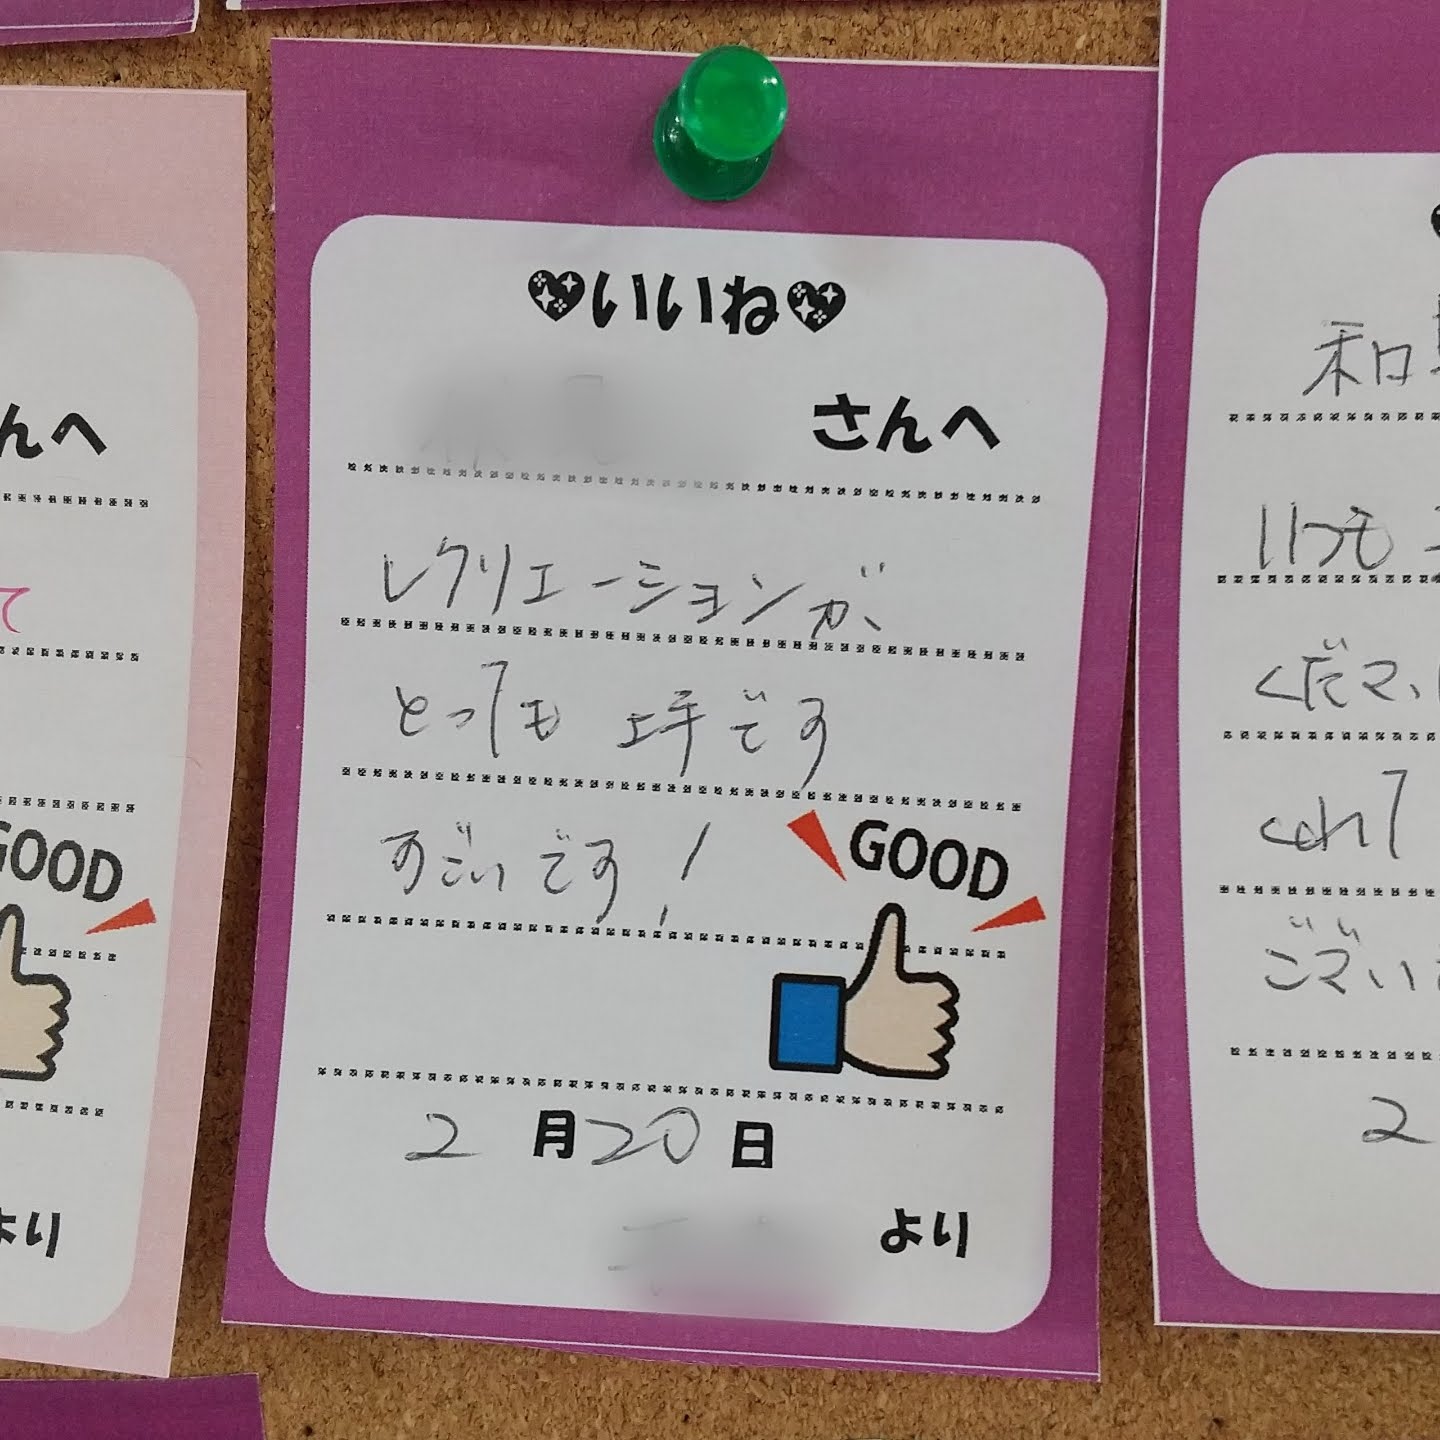 んへ
て
GOOD
より
いいね
さんへ
レクリエーションが、
とっても 上手です
すごいです!
GOOD
2月20日
より
和
いつも
くださ
くれて
ござい
2